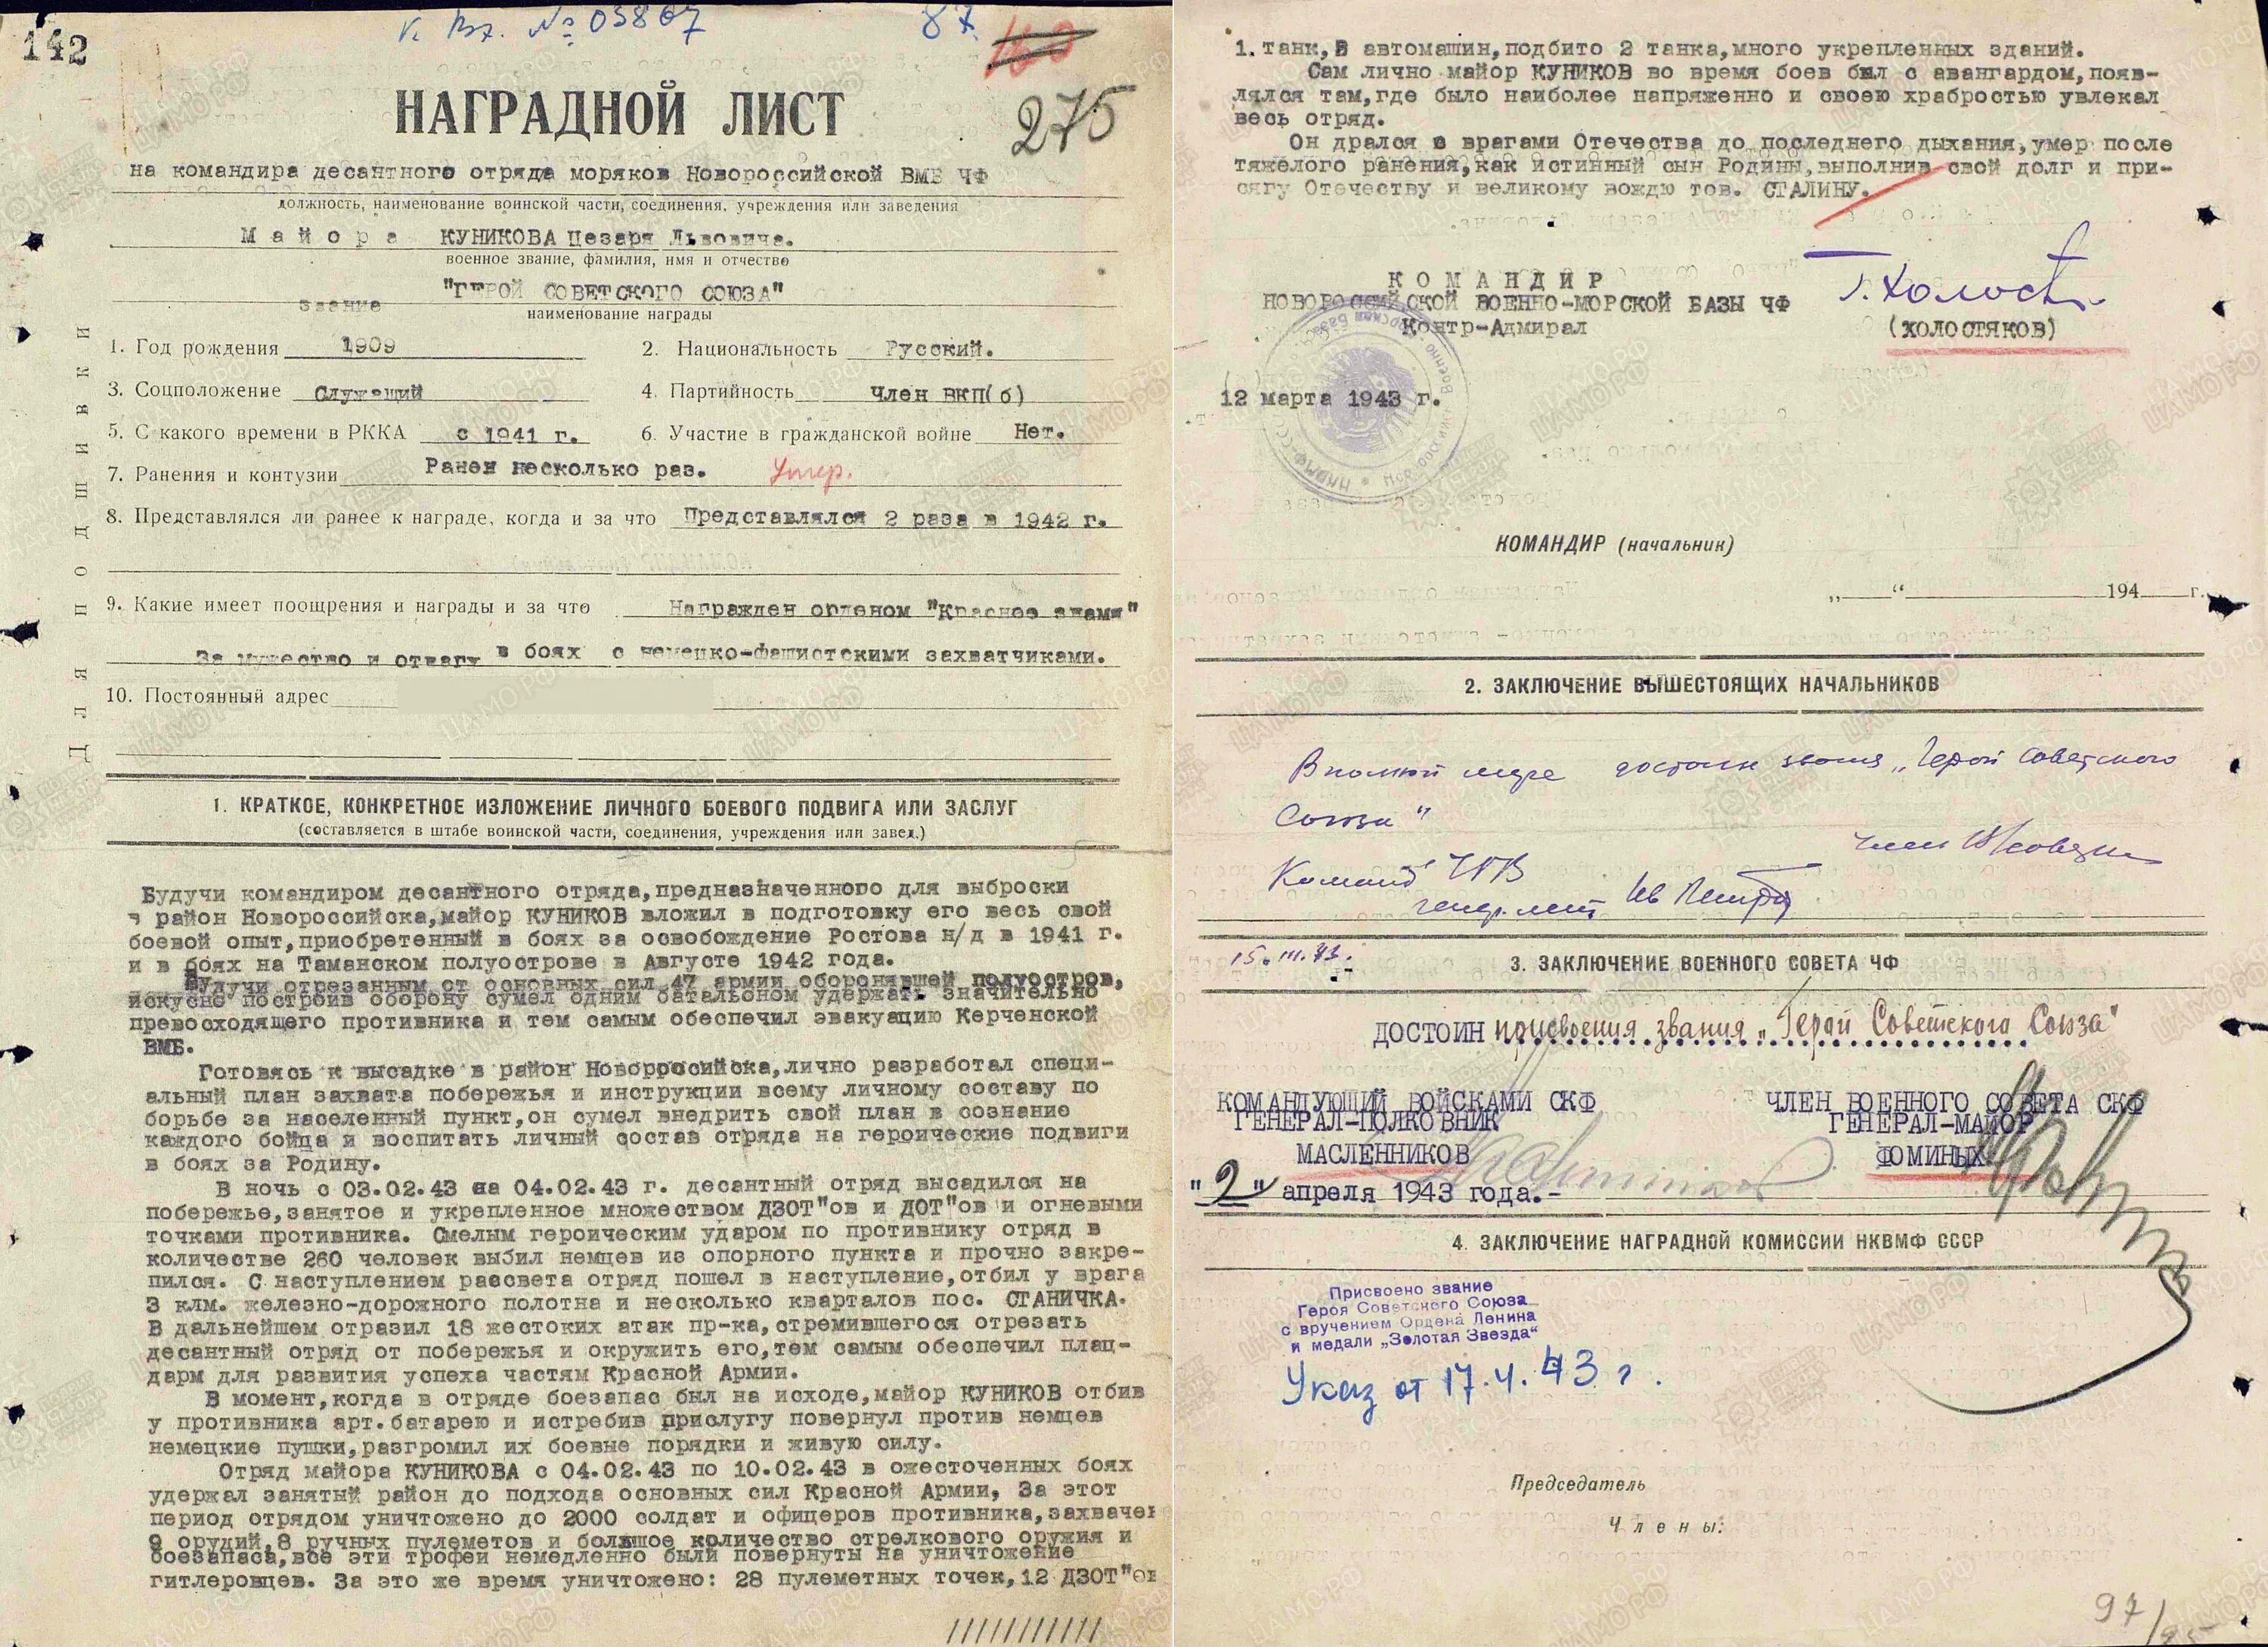 142
№ 03867
87.
160
275
НАГРАДНОЙ ЛИСТ
на командира десантного отряда моряков Новороссийской ВМБ ЧФ
должность, наименование воинской части, соединения, учреждения или заведения
Майора КУНИКОВА Цезаря Львовича.
военное звание, фамилия, имя и отчество
"ГЕРОЙ СОВЕТСКОГО СОЮЗА"
звание
наименование награды
1. Год рождения 1909 2. Национальность Русский.
3. Соцположение Служащий 4. Партийность Член ВКП(б)
5. С какого времени в РККА с 1941 г. 6. Участие в гражданской войне Нет.
7. Ранения и контузии Ранен несколько раз. Умер.
8. Представлялся ли ранее к награде, когда и за что Представлялся 2 раза в 1942 г.
9. Какие имеет поощрения и награды и за что Награжден орденом "Красное знамя"
За мужество и отвагу в боях с немецко-фашистскими захватчиками.
10. Постоянный адрес
Для подшивки
1. КРАТКОЕ, КОНКРЕТНОЕ ИЗЛОЖЕНИЕ ЛИЧНОГО БОЕВОГО ПОДВИГА ИЛИ ЗАСЛУГ
(составляется в штабе воинской части, соединения, учреждения или завед.)
Будучи командиром десантного отряда,предназначенного для выброски
в район Новороссийска,майор КУНИКОВ вложил в подготовку его весь свой
боевой опыт,приобретенный в боях за освобождение Ростова н/д в 1941 г.
и в боях на Таманском полуострове в Августе 1942 года.
Будучи отрезанным от основных сил 47 армии оборонявшей полуостров,
искусно построив оборону сумел одним батальоном удержать значительно
превосходящего противника и тем самым обеспечил эвакуацию Керченской
ВМБ.
Готовясь к высадке в район Новороссийска,лично разработал специ-
альный план захвата побережья и инструкции всему личному составу по
борьбе за населенный пункт,он сумел внедрить свой план в сознание
каждого бойца и воспитать личный состав отряда на героические подвиги
в боях за Родину.
В ночь с 03.02.43 на 04.02.43 г. десантный отряд высадился на
побережье,занятое и укрепленное множеством ДЗОТ"ов и ДОТ"ов и огневыми
точками противника. Смелым героическим ударом по противнику отряд в
количестве 260 человек выбил немцев из опорного пункта и прочно закре-
пился. С наступлением рассвета отряд пошел в наступление,отбил у врага
3 клм. железно-дорожного полотна и несколько кварталов пос. СТАНИЧКА.
В дальнейшем отразил 18 жестоких атак пр-ка,стремившегося отрезать
десантный отряд от побережья и окружить его,тем самым обеспечил плац-
дарм для развития успеха частям Красной Армии.
В момент,когда в отряде боезапас был на исходе,майор КУНИКОВ отбив
у противника арт.батарею и истребив прислугу повернул против немцев
немецкие пушки,разгромил их боевые порядки и живую силу.
Отряд майора КУНИКОВА с 04.02.43 по 10.02.43 в ожесточенных боях
удержал занятый район до подхода основных сил Красной Армии, За этот
период отрядом уничтожено до 2000 солдат и офицеров противника,захвачен
9 орудий,8 ручных пулеметов и большое количество стрелкового оружия и
боезапаса,все эти трофеи немедленно были повернуты на уничтожение
гитлеровцев. За это же время уничтожено: 28 пулеметных точек,12 ДЗОТ"ов
1. танк,В автомашин,подбито 2 танка,много укрепленных зданий.
Сам лично майор КУНИКОВ во время боев был с авангардом,появ-
лялся там,где было наиболее напряженно и своею храбростью увлекал
весь отряд.
Он дрался с врагами Отечества до последнего дыхания,умер после
тяжелого ранения,как истинный сын Родины,выполнив свой долг и при-
сягу Отечеству и великому вождю тов. СТАЛИНУ.
КОМАНДИР
НОВОРОССИЙСКОЙ ВОЕННО-МОРСКОЙ БАЗЫ ЧФ
Контр-Адмирал
Г. Холост
(ХОЛОСТЯКОВ)
12 марта 1943 г.
КОМАНДИР (начальник)
„ “ 194 г.
2. ЗАКЛЮЧЕНИЕ ВЫШЕСТОЯЩИХ НАЧАЛЬНИКОВ
В полной мере достоин звания „Герой Советского
Союза"
Команд ЧГВ
генер.лейт Ив Петров
Член В/совета
15.III.43.
3. ЗАКЛЮЧЕНИЕ ВОЕННОГО СОВЕТА ЧФ
ДОСТОИН присвоения звания „Герой Советского Союза"
КОМАНДУЮЩИЙ ВОЙСКАМИ СКФ
ГЕНЕРАЛ-ПОЛКОВНИК
МАСЛЕННИКОВ
ЧЛЕН ВОЕННОГО СОВЕТА СКФ
ГЕНЕРАЛ-МАЙОР
ФОМИНЫХ
"2" апреля 1943 года.-
4. ЗАКЛЮЧЕНИЕ НАГРАДНОЙ КОМИССИИ НКВМФ СССР
Присвоено звание
Героя Советского Союза
с вручением Ордена Ленина
и медали „Золотая Звезда"
Указ от 17.4.43 г.
Председатель
Члены:
97/